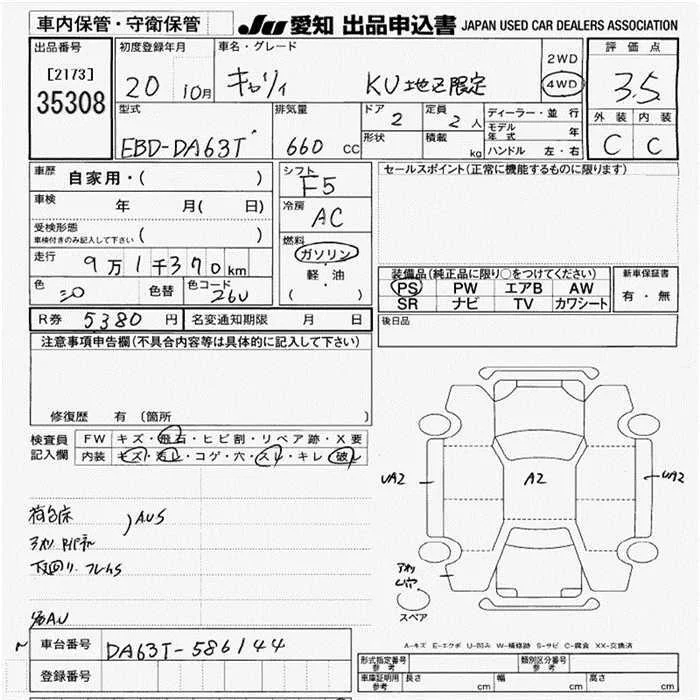 車内保管・守衛保管
JU 愛知 出品申込書 JAPAN USED CAR DEALERS ASSOCIATION
出品番号
[2173]
35308
初度登録年月
20 10月
車名・グレード
キャリィ KU地区限定
2WD
4WD
評価点
3.5
外装 内装
C C
型式
EBD-DA63T
排気量
660 CC
ドア
2
形状
定員
2人
積載
kg
ディーラー・並行
モデル年式 年
ハンドル 左・右
車歴
自家用・( )
車検
年 月( 日)
受検形態
車検付きのみ記入して下さい ( )
走行
9万1千370km
色
シロ
色替
色コード
26U
シフト
F5
冷房
AC
燃料
ガソリン
軽・油
( )
セールスポイント(正常に機能するものに限ります)
装備品(純正品に限り○をつけてください)
PS PW エアB AW
SR ナビ TV カワシート
新車保証書
有・無
後日品
R券 5380 円 名変通知期限 月 日
注意事項申告欄(不具合内容等は具体的に記入して下さい)
修復歴 有 (箇所 )
検査員記入欄
FW キズ・飛石・ヒビ割・リペア跡・X要
内装 キズ・汚レ・コゲ・穴・スレ・キレ・破レ
荷台床
AUS
下回り.フレムS
UA2
A2
UA2
スペア
A-キズ E-エクボ U-凹み W-補修跡 S-サビ C-腐食 XX-交換済
車台番号 DA63T-586144
登録番号
形式指定番号
参考
類別区分番号
参考
車庫証明用
参考
長さ cm 幅 cm 高さ cm